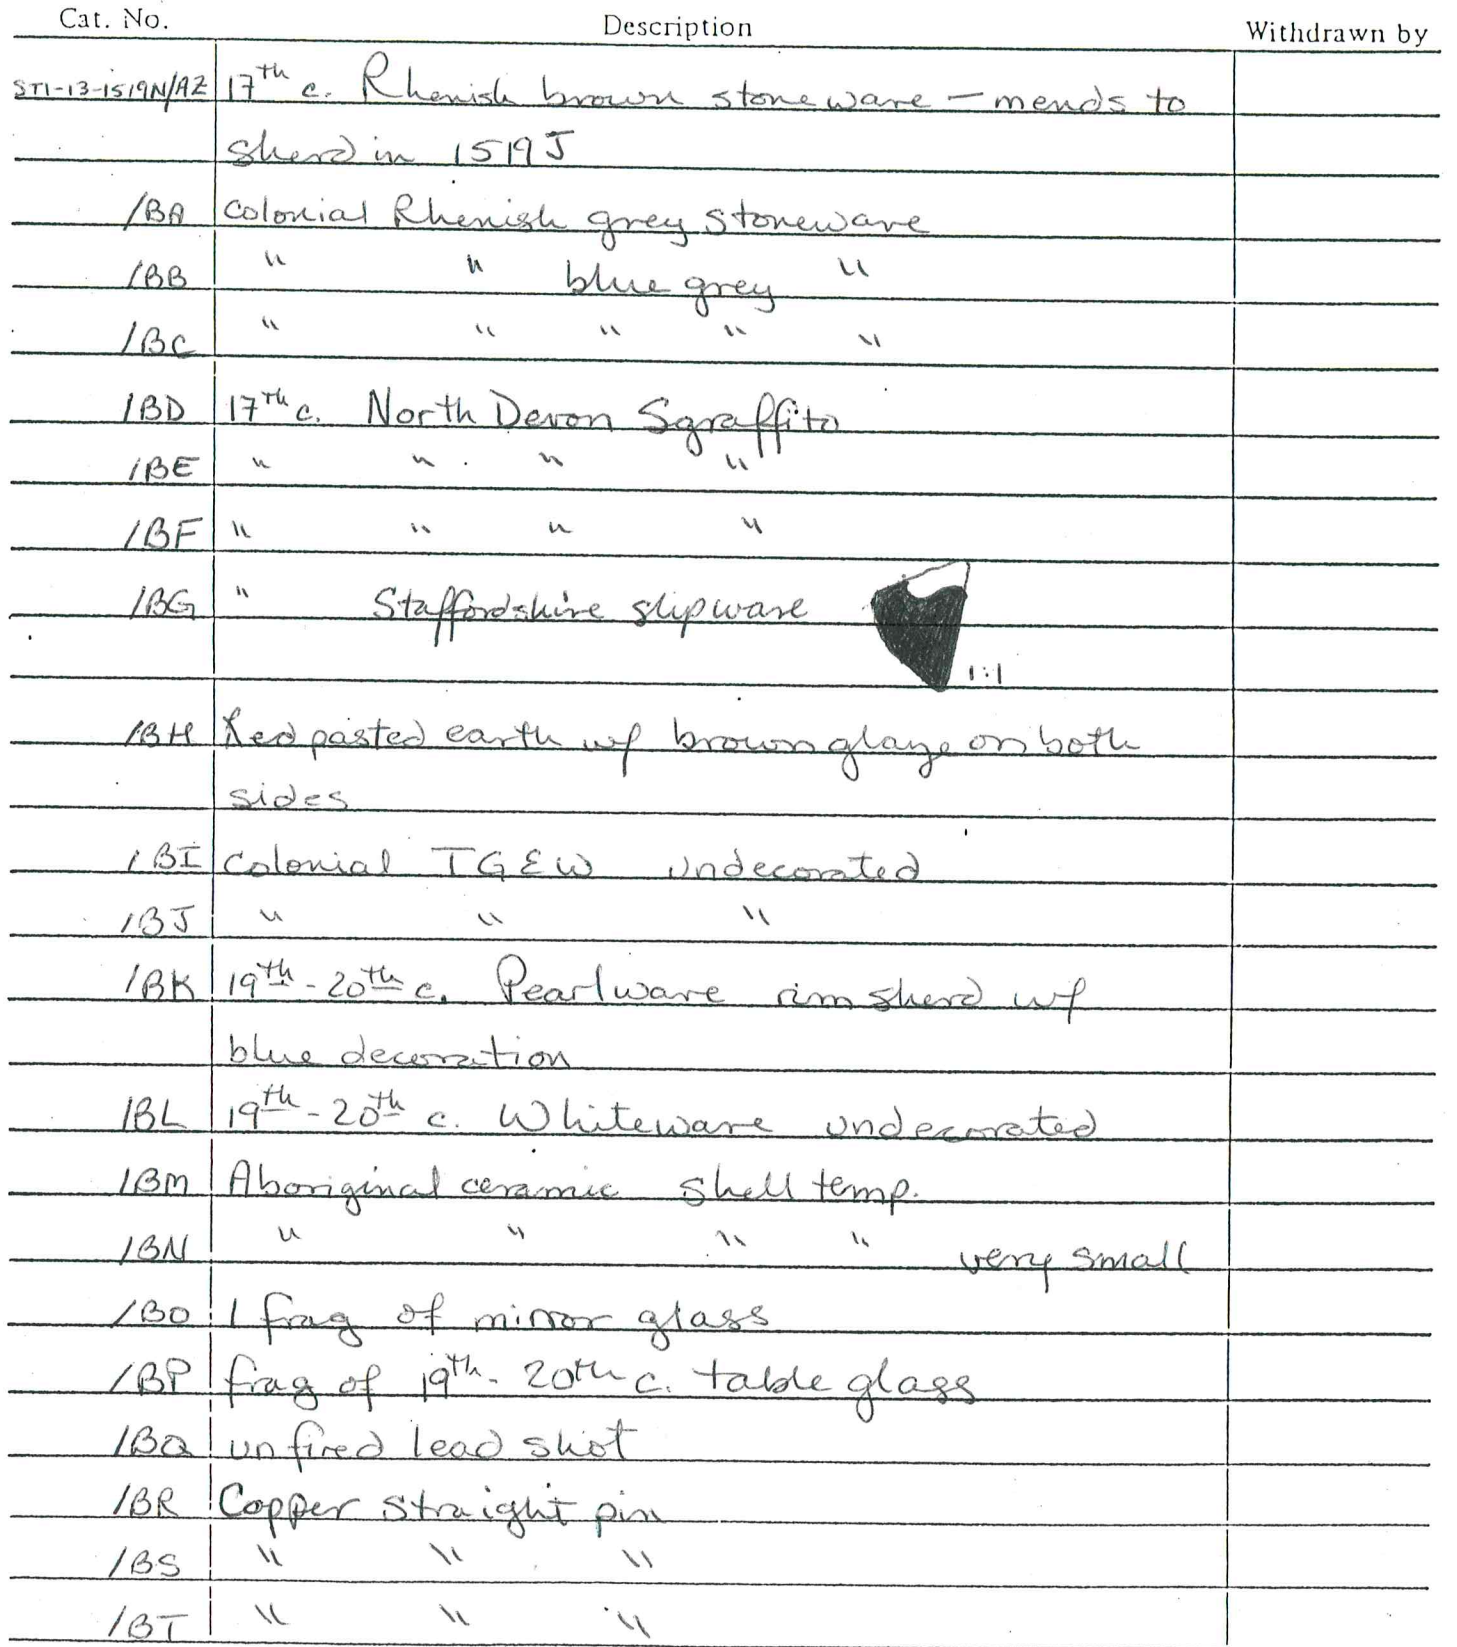 Cat. No. Description Withdrawn by
ST1-13-1519N/AZ 17th c. Rhenish brown stoneware – mends to
sherd in 1519J
/BA Colonial Rhenish grey stoneware
/BB " " blue grey "
/BC " " " " "
/BD 17th c. North Devon Sgraffito
/BE " " " "
/BF " " " "
/BG " Staffordshire slipware
1:1
/BH Red pasted earth w/ brown glaze on both
sides
/BI Colonial TGEW undecorated
/BJ " " "
/BK 19th-20th c. Pearlware rim sherd w/
blue decoration
/BL 19th-20th c. Whiteware undecorated
/BM Aboriginal ceramic shell temp.
/BN " " " " very small
/BO 1 frag of mirror glass
/BP frag of 19th-20th c. table glass
/BQ unfired lead shot
/BR Copper straight pin
/BS " " "
/BT " " "